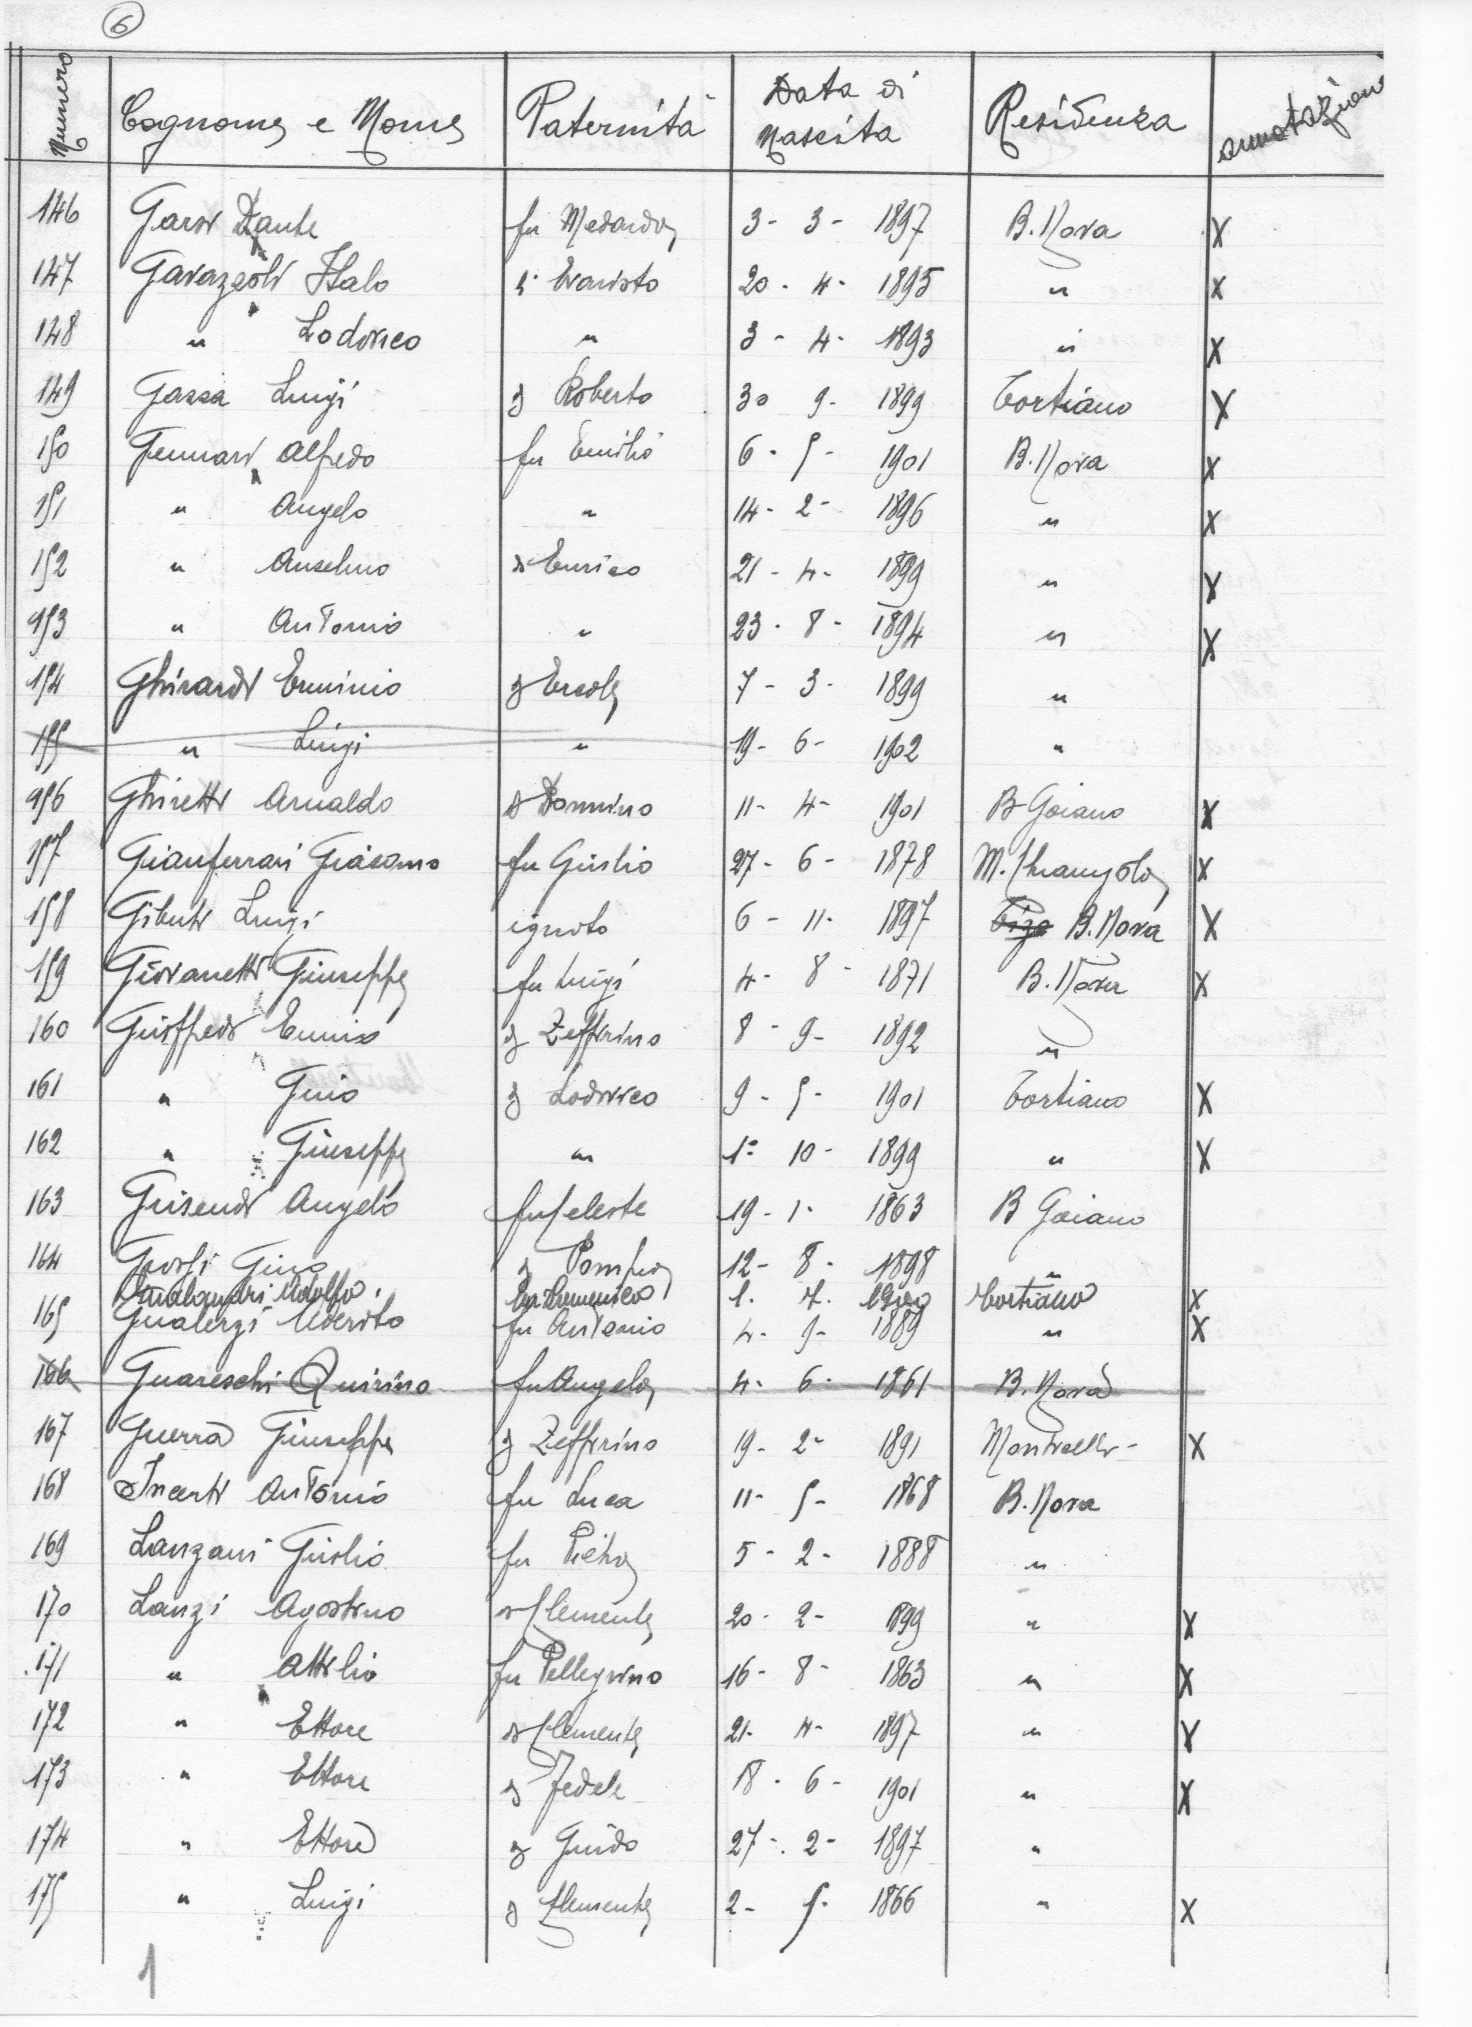 6
Numero Cognome e Nome Paternità Data di Nascita Residenza annotazioni
146 Garsi Dante fu Medardo 3 - 3 - 1897 B. Nova X
147 Garazzoli Italo di Evaristo 20 - 4 - 1895 " X
148 " Lodovico " 3 - 4 - 1893 " X
149 Gazza Luigi di Roberto 30 9 - 1899 Tortiano X
150 Gennari Alfredo fu Emilio 6 - 5 - 1901 B. Nova X
151 " Angelo " 14 - 2 - 1896 " X
152 " Anselmo di Enrico 21 - 4 - 1899 " X
153 " Antonio " 23 - 8 - 1894 " X
154 Ghirardi Erminio di Ercole 7 - 3 - 1899 "
155 " Luigi " 19 - 6 - 1902 "
156 Ghiretti Arnaldo di Donnino 11 - 4 - 1901 B Gaiano X
157 Gianferrari Giacomo fu Giulio 27 - 6 - 1878 X
158 Giberti Luigi ignoto 6 - 11 - 1897 B. Nova X
159 Giovanetti Giuseppe fu Luigi 4 - 8 - 1871 B. Nova X
160 Giuffredi Ennio di Zeffirino 8 - 9 - 1892 "
161 " Gino di Lodovico 9 - 5 - 1901 Tortiano X
162 " Giuseppe " 1° 10 - 1899 " X
163 Grisendi Angelo fu Celeste 19 - 1 - 1863 B Gaiano
164 Gino di Pompeo 12 - 8 - 1898 "
Adolfo fu Domenico 1. 7. 1900 Tortiano X
165 Gualerzi fu Antonio 4 - 9 - 1889 " X
166 Guareschi Quirino fu Angelo 4 - 6 - 1861 B. Nova
167 Guerra Giuseppe di Zeffirino 19 - 2 - 1891 Monticelli - X
168 Incerti Antonio fu Luca 11 - 5 - 1868 B. Nova
169 Lanzani Giulio fu Pietro 5 - 2 - 1888 "
170 Lanzi Agostino di Clemente 20 - 2 - 899 " X
171 " Attilio fu Pellegrino 16 - 8 - 1863 " X
172 " Ettore di Clemente 21 - 4 - 1897 " X
173 " Ettore di Fedele 18 - 6 - 1901 " X
174 " Ettore di Guido 27 - 2 - 1897 "
175 " Luigi di Clemente 2 - 5 - 1866 " X
1